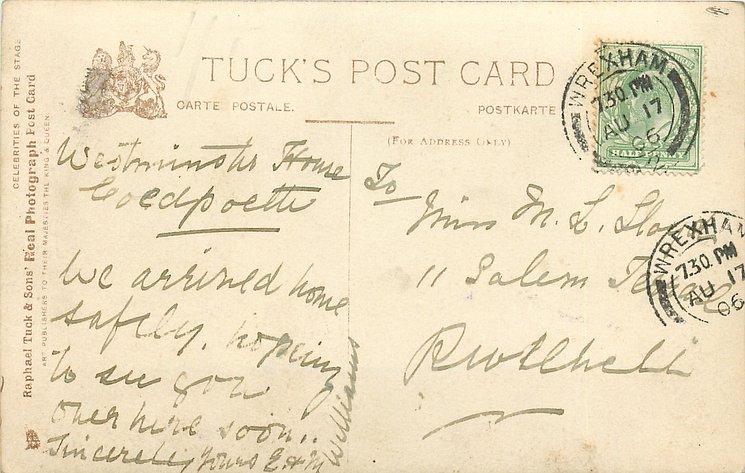 TUCK'S POST CARD
CARTE POSTALE.
POSTKARTE
(FOR ADDRESS ONLY)
CELEBRITIES OF THE STAGE
Raphael Tuck & Sons' Real Photograph Post Card
ART PUBLISHERS TO THEIR MAJESTIES THE KING & QUEEN.
WREXHAM
7.30 PM
AU 17
06
HALFPENNY
WREXHAM
7.30 PM
AU 17
06
Westminster House
Coedpoeth
We arrived home
safely. hoping
to see you
over here soon..
Sincerely yours E & M
Williams
To
Miss M. L.
11 Salem Terrace
Pwllheli